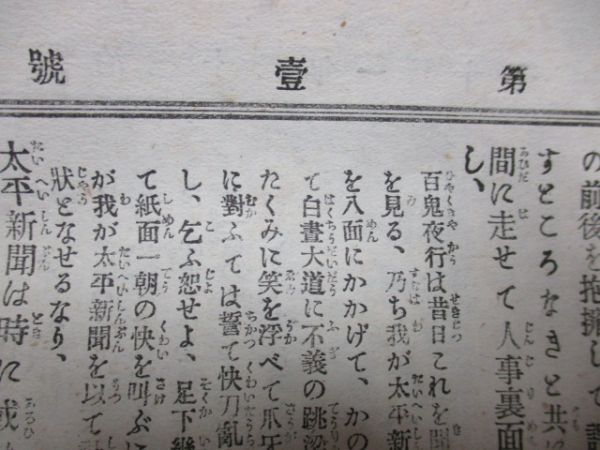 第壹號
の前後を抱擁して
すところなきと共に
間に走せて人事裏面
し、
百鬼夜行は昔日これを聞
を見る、乃ち我が太平新
を八面にかかげて、かの
て白晝大道に不義の跳梁
たくみに笑を浮べて爪牙
に對ふては誓て快刀亂
し、乞ふ恕せよ、足下幾
て紙面一朝の快を叫ぶに
が我が太平新聞を以て
狀となせるなり、
太平新聞は時に或